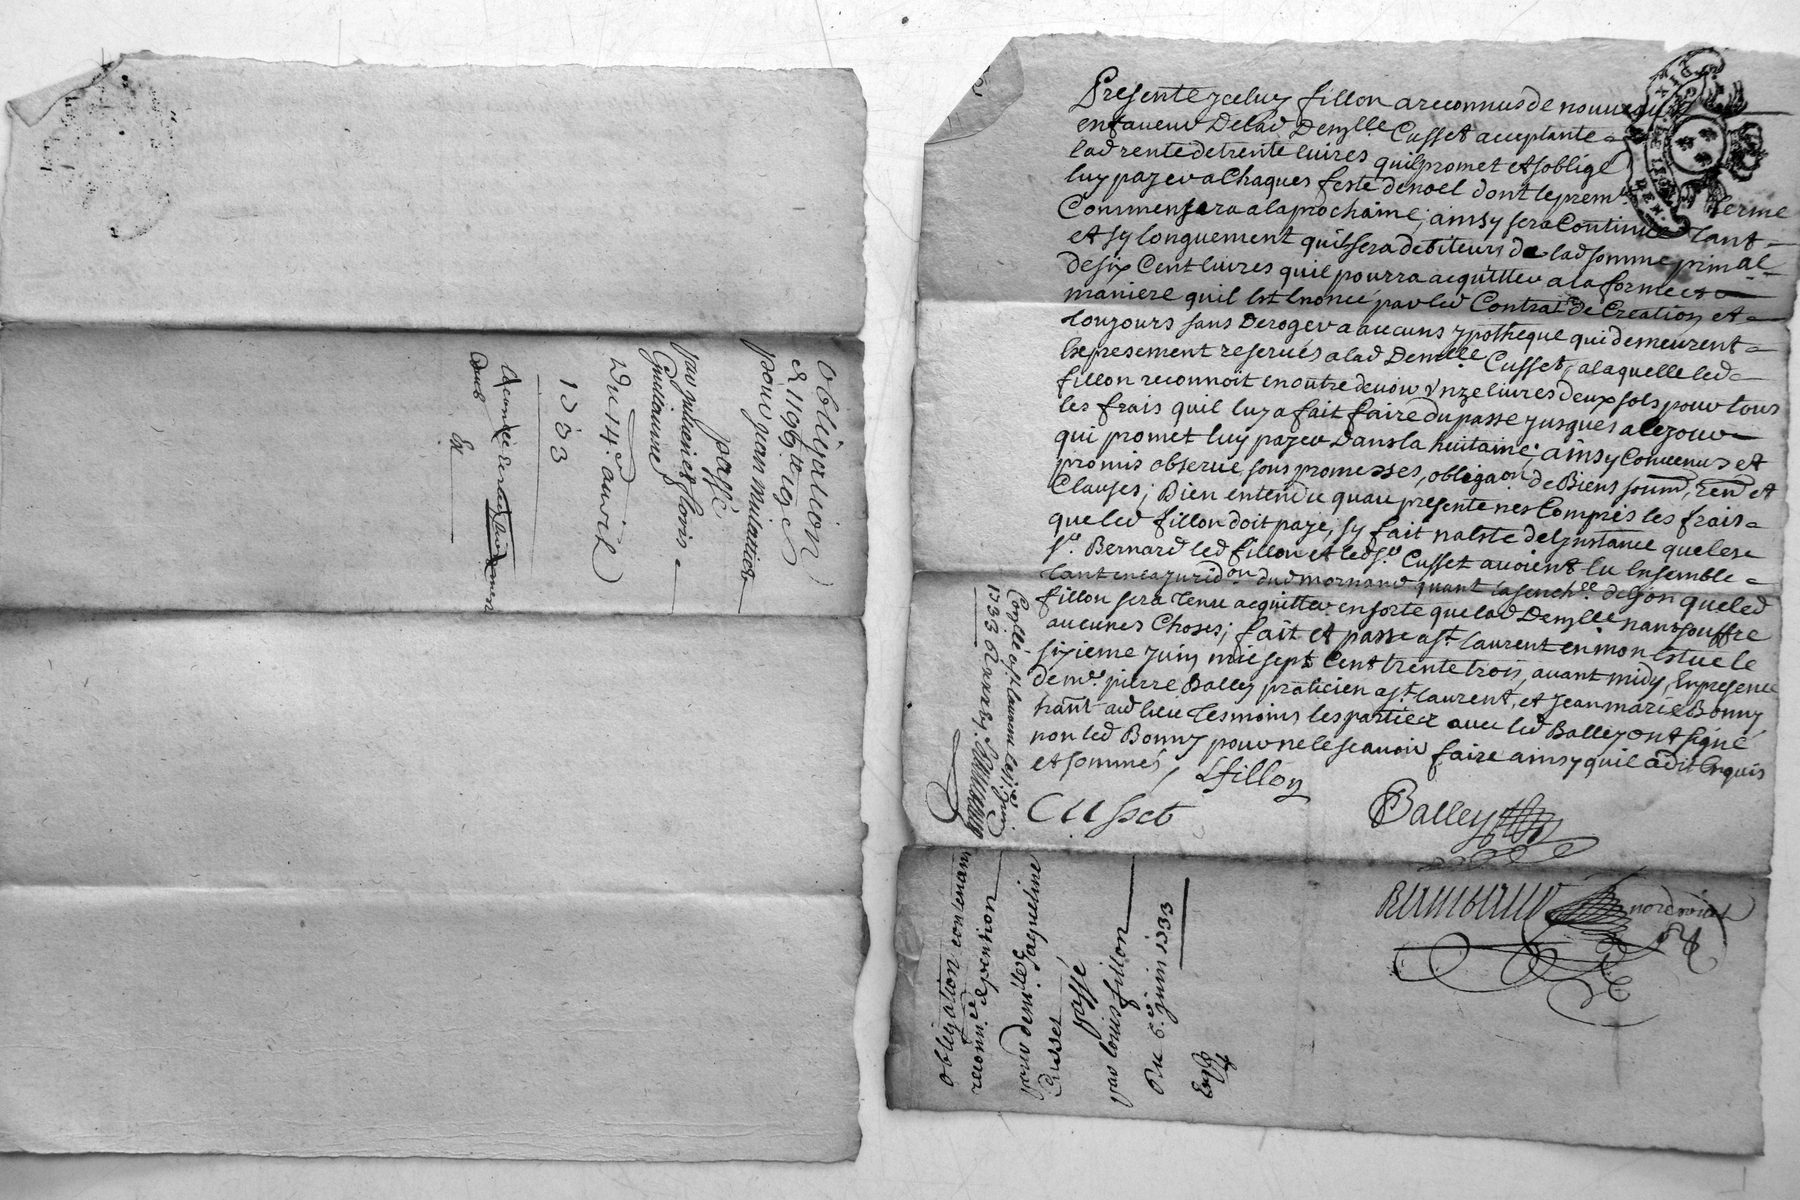 obligation
de 119lt 10s
pour jean mulattier
passé
par julien et floris
Guillaume
Du 14e. avril
1733
Presente yceluy fillon a reconnus de nouveau
en faveur De lad Demlle Cusset acceptante
lad rente de trente livres quil promet et soblige
luy payer a Chaques feste de noel dont le premr. terme
Commensera a la prochaine; ainsy sera Continué tant
et sy longuement quil sera debiteurs de lad somme prinalle
de six Cent livres quil pourra acquitter a la forme et
maniere quil Est Enoncé par led Contrat De Creation et
toujours sans Deroger a aucuns ypotheque qui demeurent
Expresement reservés a lad Demlle Cusset, a laquelle led
fillon reconnoit en outre devoir Unze livres deux sols pour tous
les frais quil luy a fait faire du passe jusques a ce jour
qui promet luy payer Dans la huitaine; ainsy Convenus et
promis observé, sous promesses, obligaon de Biens soumn, renon et
Clauses; Bien entendu quau presente nes Compris les frais
que led fillon doit paye, sy fait na esté de Linstance que les
sr. Bernard led fillon et led sr. Cusset avoient Eu Ensemble
tant en la juridon dud mornand quant la senchee. de Lyon que led
fillon sera tenu acquitter en sorte que lad Demlle nan souffre
aucunes Choses; fait et passe a st. laurent en mon Estude le
sixieme juin mil sept Cent trente trois, avant midy, En presence
de me. pierre Balley praticien a st. laurent, et Jean marie Bonny
hant aud lieu tesmoins les parties avec led Balley ont signé
non led Bonny pour ne le scavoir faire ainsy quil a dit Enquis
et sommés;
Lfillon
Cusset
Balley
Rambaud
Corollé a st laurent le
1733
obligation contenant
reconnce de pention
pour demlle Jaqueline
Cusset
passé
par louis fillon
Du 6e. juin 1733
Exp